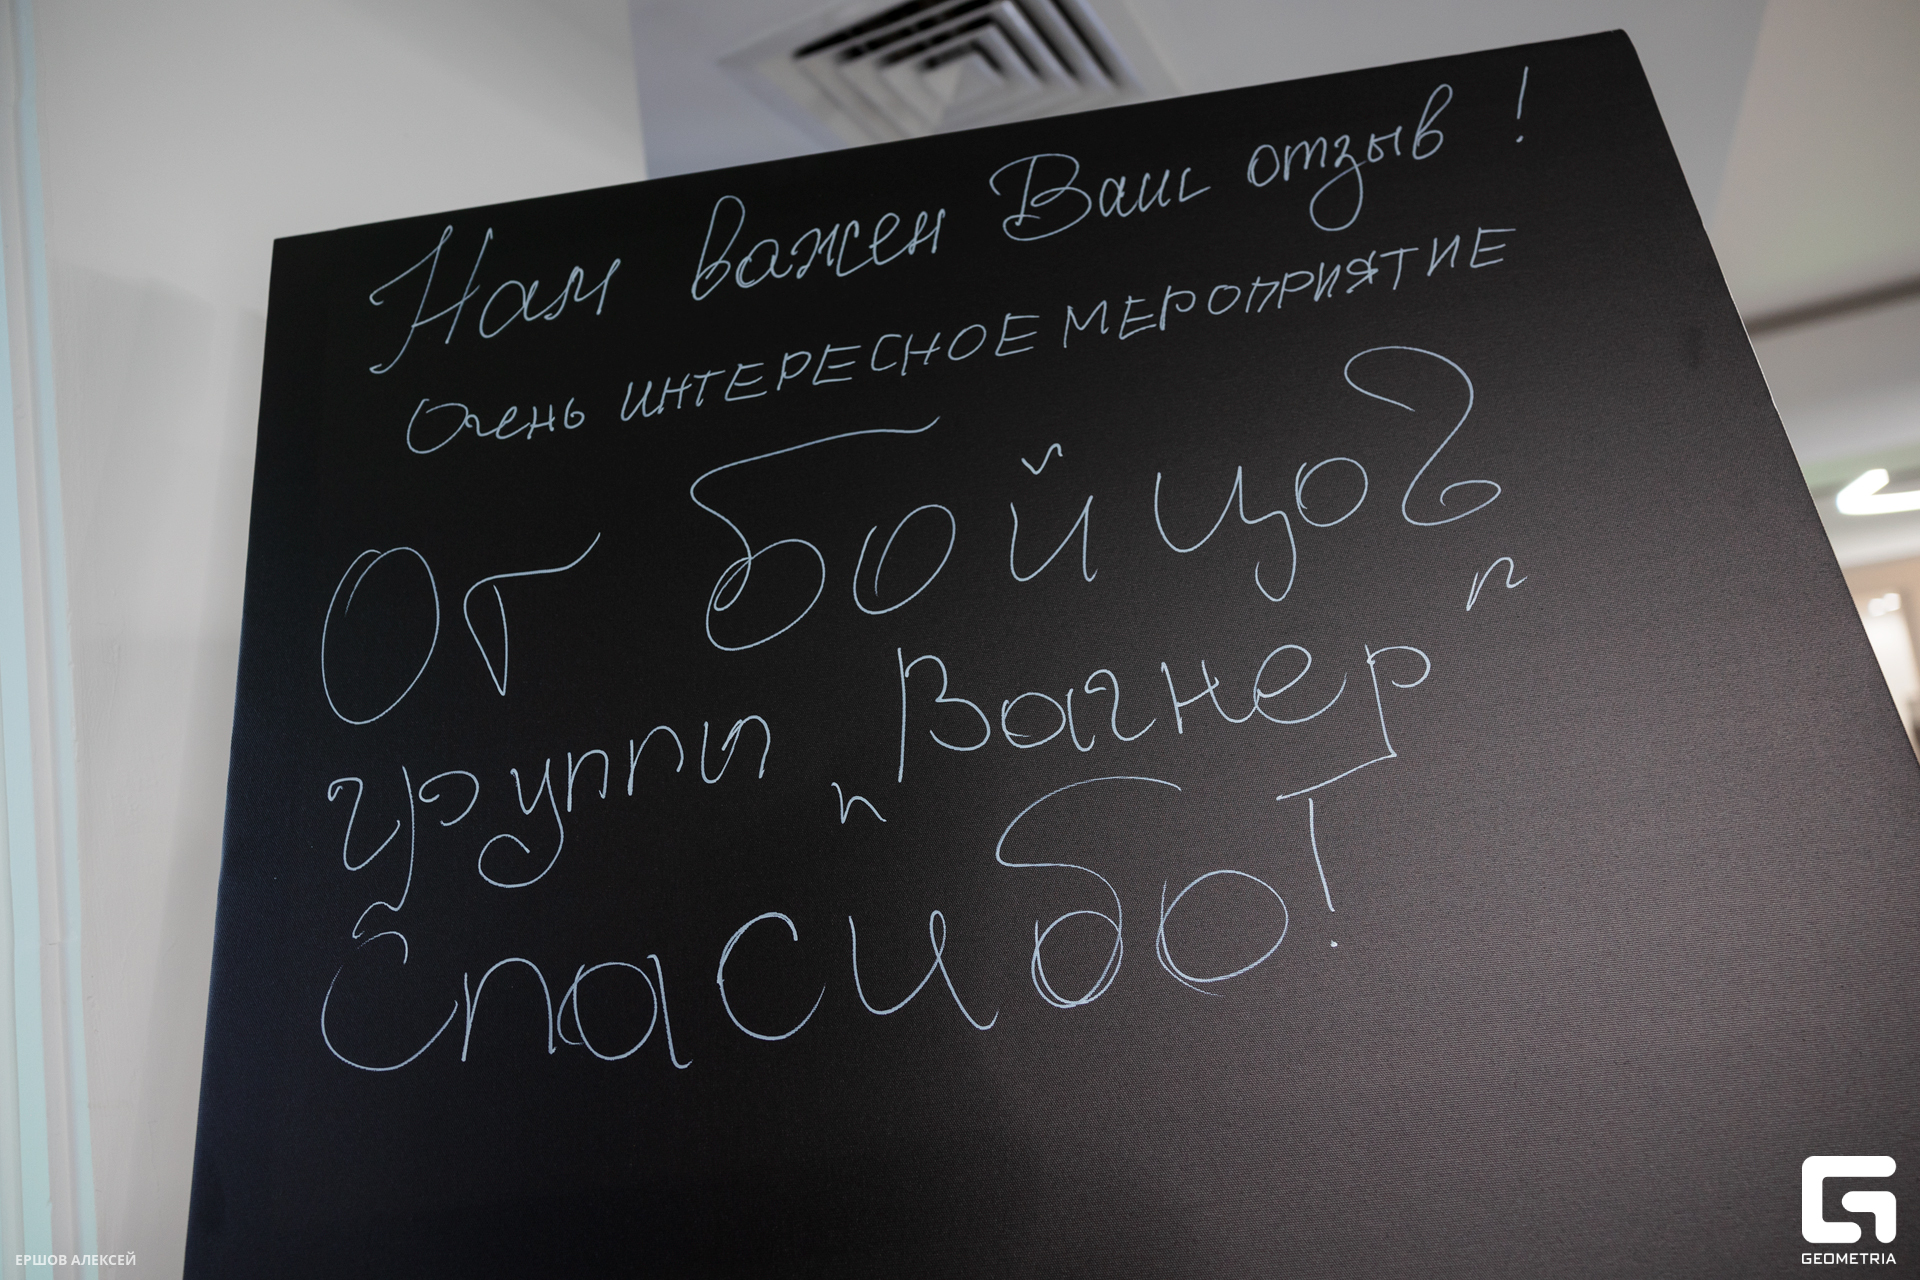 Нам важен Ваш отзыв !
Очень ИНТЕРЕСНОЕ МЕРОПРИЯТИЕ
От бойцов
группы "Вагнер"
Спасибо!
ЕРШОВ АЛЕКСЕЙ
GEOMETRIA